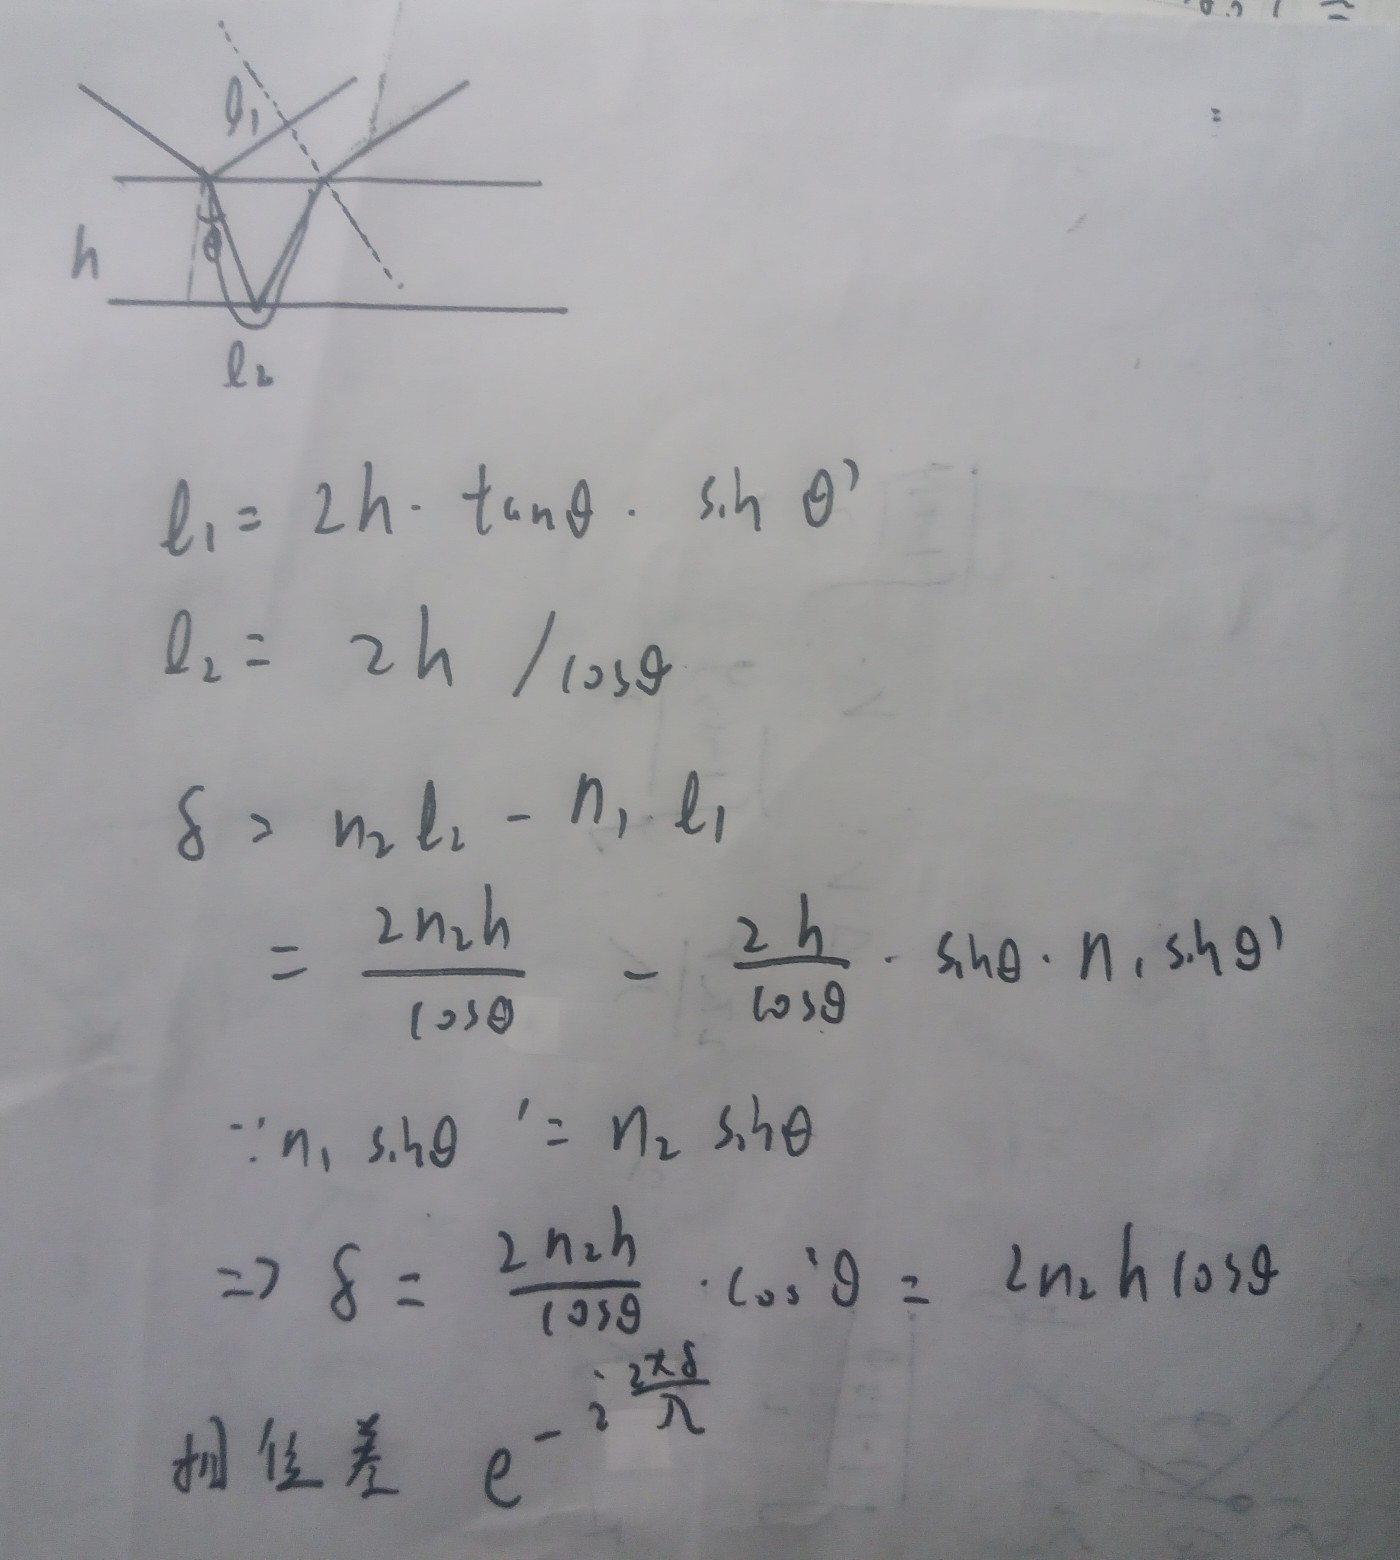 l₁
h
θ
l₂
l₁ = 2h · tanθ · sin θ'
l₂ = 2h / cosθ
δ = n₂ l₂ - n₁ l₁
= 2n₂h / cosθ - 2h / cosθ · sinθ · n₁ sinθ'
∵ n₁ sinθ' = n₂ sinθ
=> δ = 2n₂h / cosθ · cos²θ = 2n₂ h cosθ
相位差 e^(-i 2πδ/λ)